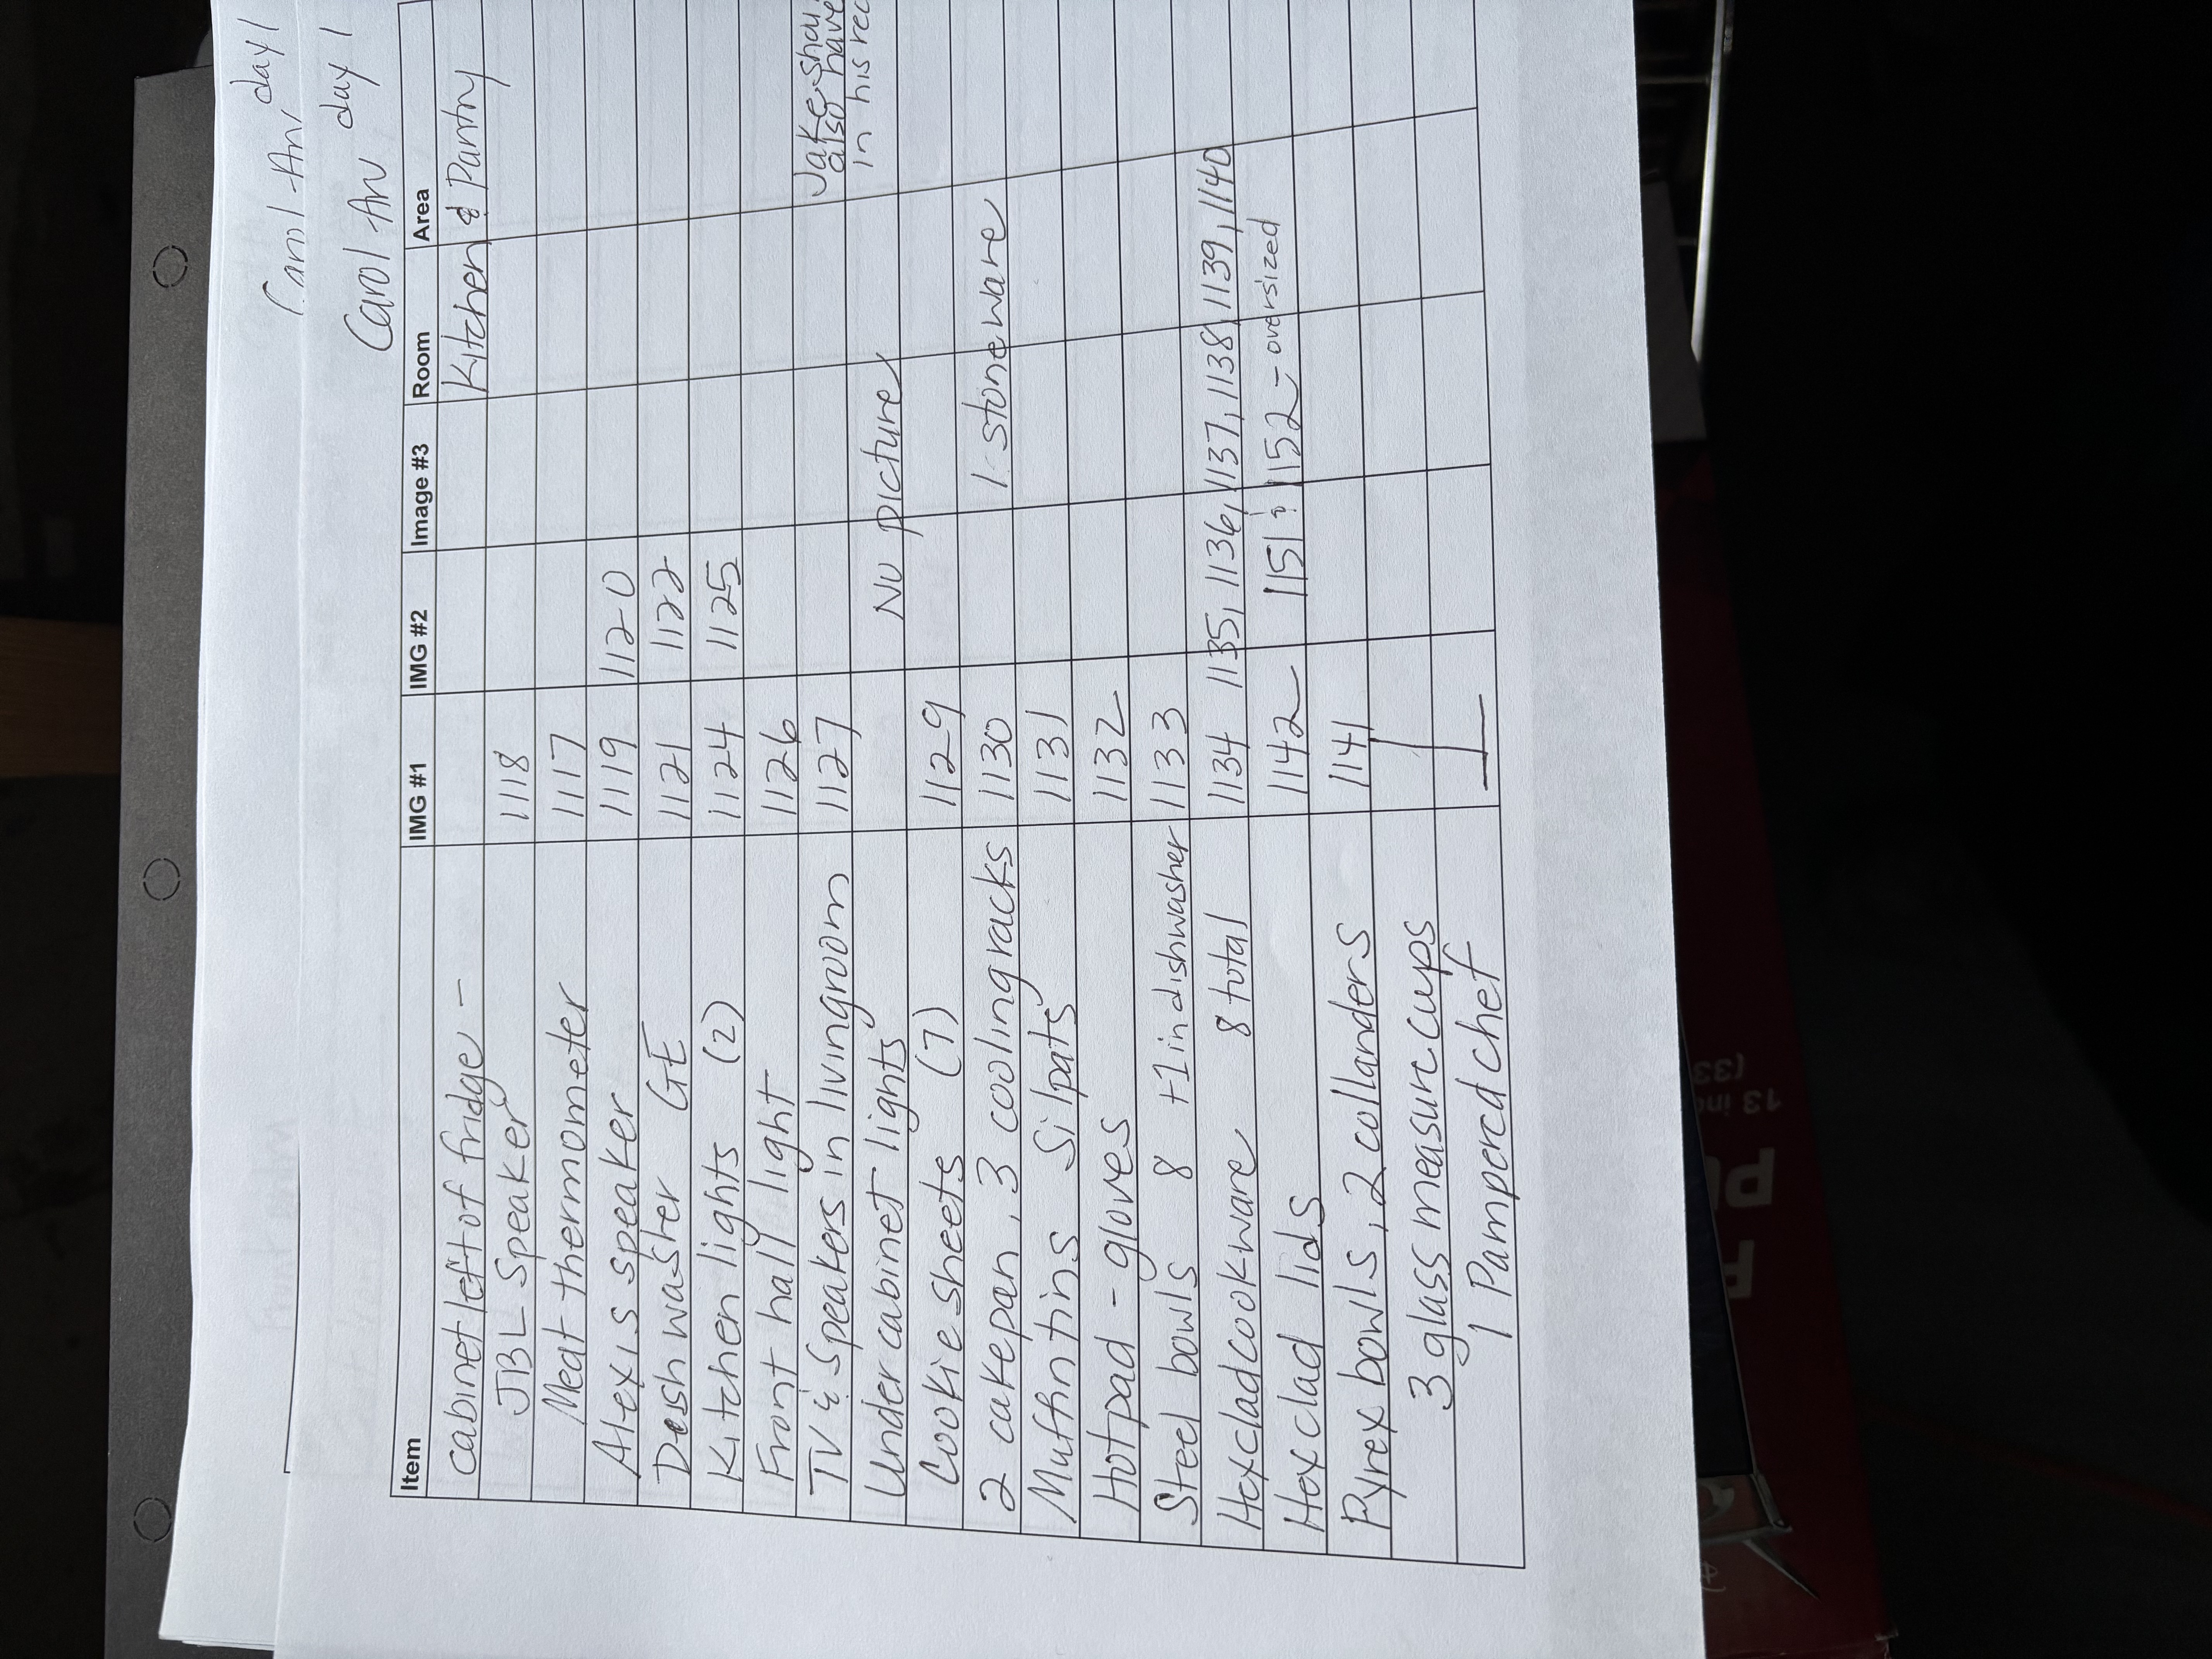 Carol An, day 1
Carol An day 1
Item IMG #1 IMG #2 Image #3 Room Area
cabinet left of fridge - Kitchen & Pantry
JBL Speaker 1118
Meat thermometer 1117
Alexis speaker 1119 1120
Dishwasher GE 1121 1122
Kitchen lights (2) 1124 1125
Front hall light 1126
TV & Speakers in livingroom 1127 Jake shou
also have
in his rec
Under cabinet lights No picture
Cookie sheets (7) 1129
2 cakepan, 3 coolingracks 1130 1 stoneware
Muffintins Silpats 1131
Hotpad - gloves 1132
Steel bowls 8 +1 in dishwasher 1133
Hexcladcookware 8 total 1134 1135, 1136, 1137, 1138, 1139, 1140
Hexclad lids 1142 1151 & 1152 - oversized
Pyrex bowls, 2 collanders 1141
3 glass measure cups
1 Pampered chef
13 in
(33